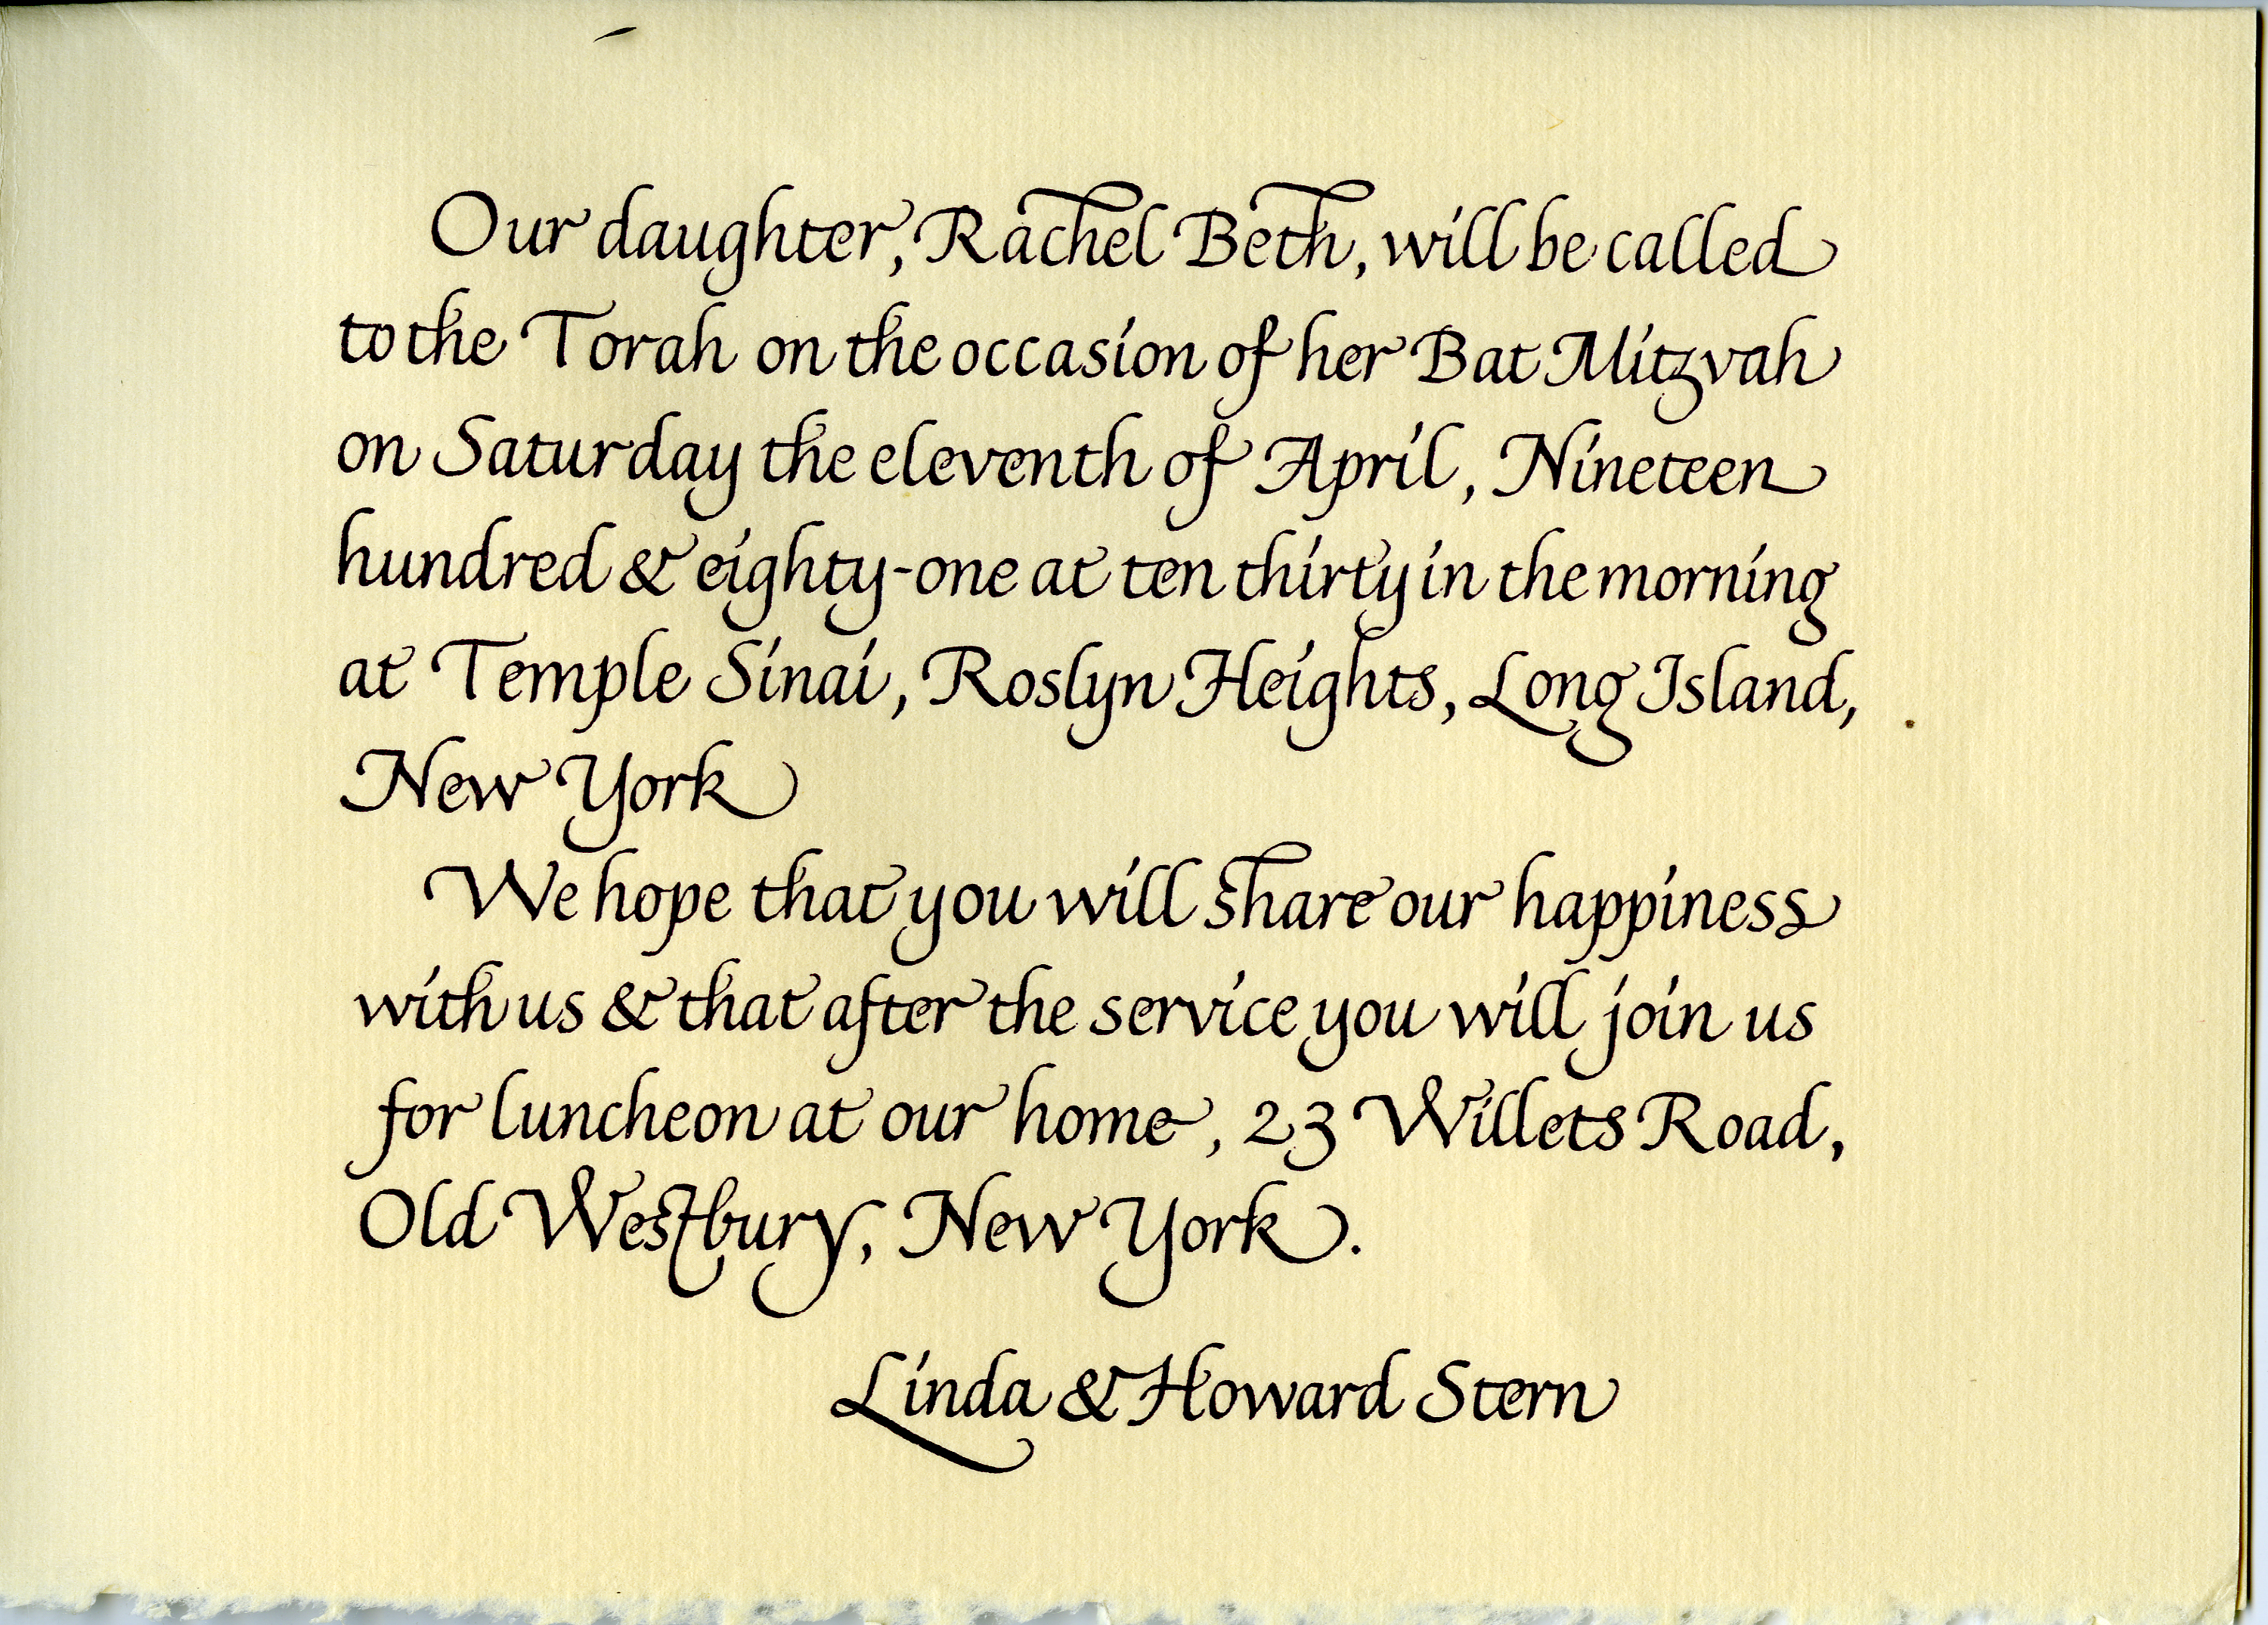 Our daughter, Rachel Beth, will be called
to the Torah on the occasion of her Bat Mitzvah
on Saturday the eleventh of April, Nineteen
hundred & eighty-one at ten thirty in the morning
at Temple Sinai, Roslyn Heights, Long Island,
New York
We hope that you will share our happiness
with us & that after the service you will join us
for luncheon at our home, 23 Willets Road,
Old Westbury, New York.
Linda & Howard Stern